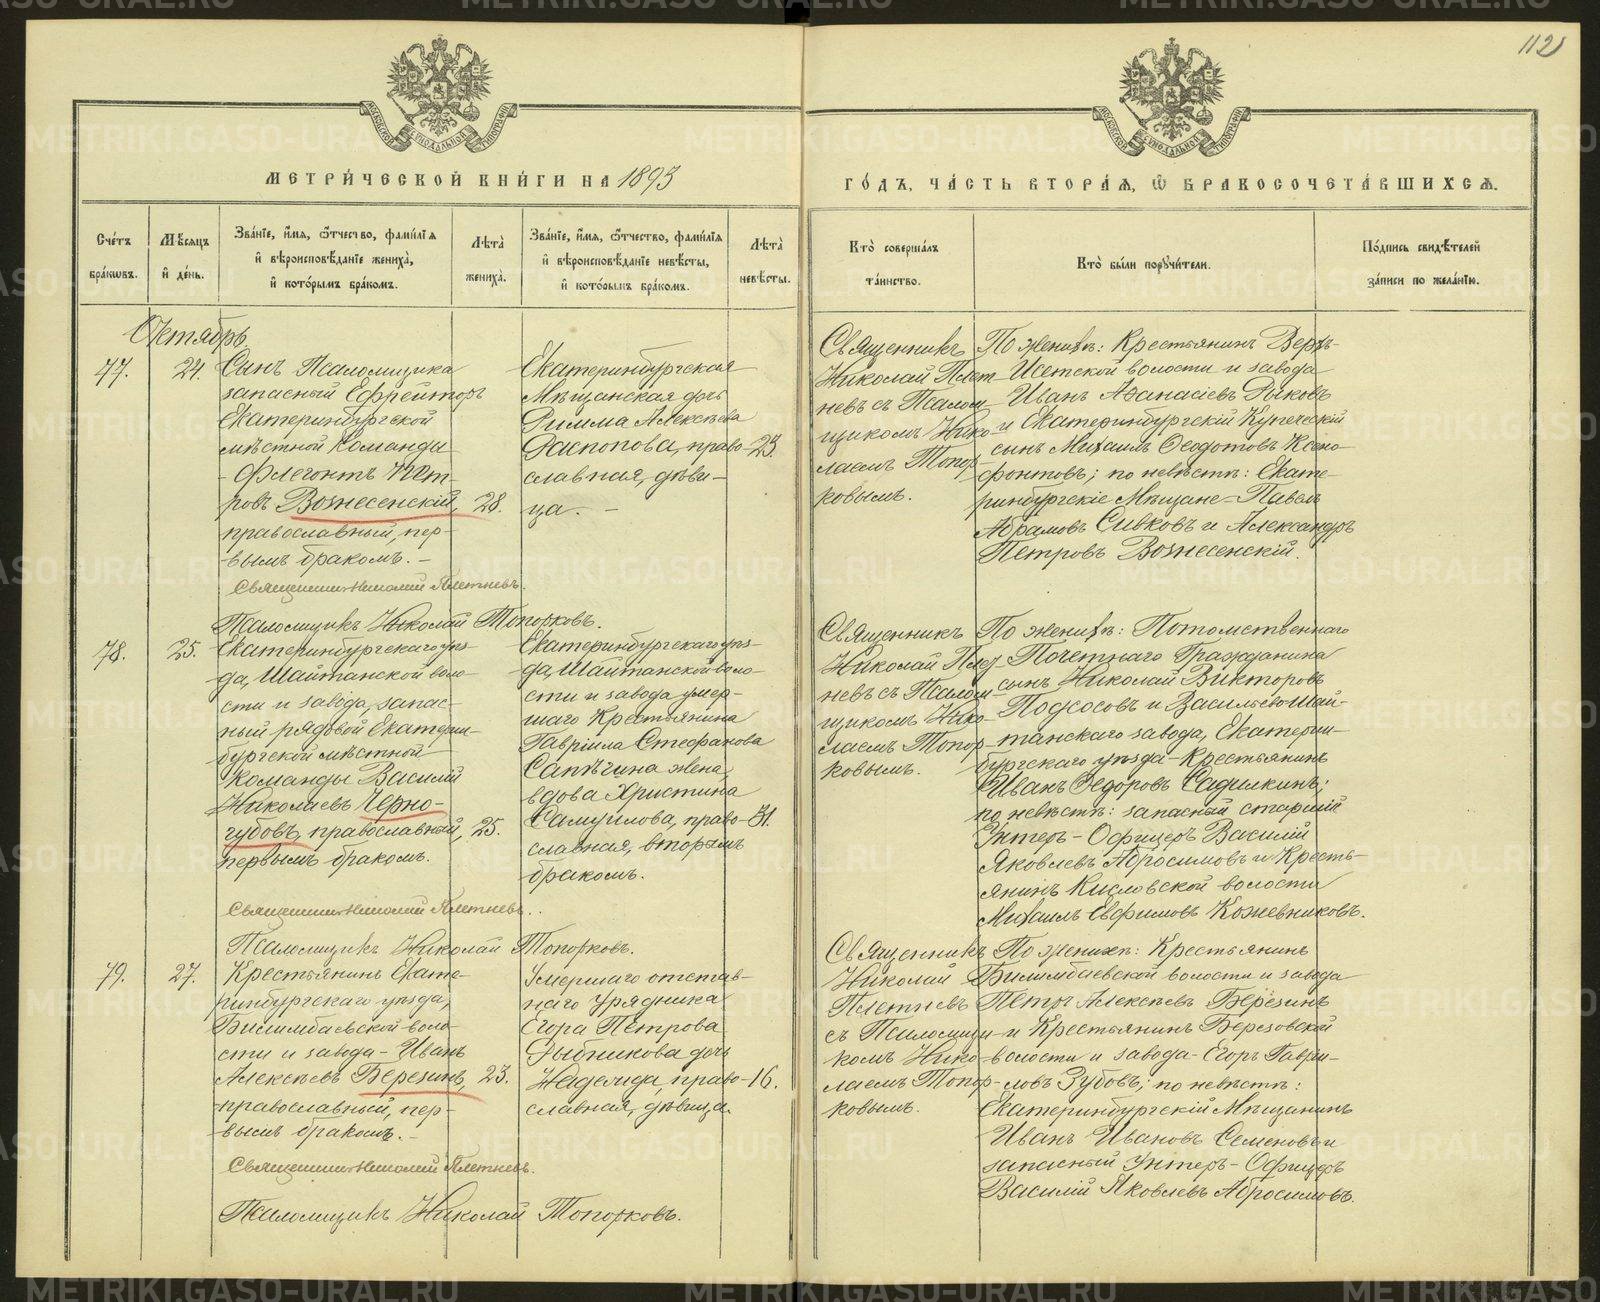 112
МОСКОВСКОЙ СѴНОДАЛЬНОЙ ТИПОГРАФІИ
МОСКОВСКОЙ СѴНОДАЛЬНОЙ ТИПОГРАФІИ
МЕТРИ́ЧЕСКОЙ КНИ́ГИ НА 1893
ГО́ДЪ, ЧА́СТЬ ВТОРА́Ѧ, Ѿ БРАКОСОЧЕТА́ВШИХСѦ.
Сче́тъ
бра́кѡвъ.
Мѣ́сѧцъ
и҆ де́нь.
Зва́нїе, и҆́мѧ, ѻ҆́тчество, фами́лїѧ
и҆ вѣроисповѣ́данїе жениха̀,
и҆ кото́рымъ бра́комъ.
Лѣта̀
жениха̀.
Зва́нїе, и҆́мѧ, ѻ҆́тчество, фами́лїѧ
и҆ вѣроисповѣ́данїе невѣ́сты,
и҆ кото́рымъ бра́комъ.
Лѣта̀
невѣ́сты.
Кто̀ соверша́лъ
та́инство.
Кто̀ бы́ли порꙋчи́тели.
По́дпись свидѣ́телей
за́писи по жела́нїю.
Октябрь.
77.
24.
Сынъ Псаломщика
запасный Ефрейторъ
Екатеринбургской
мѣстной Команды
Флегонтъ Пет-
ровъ Вознесенскій,
православный, пер-
вымъ бракомъ. –
28.
Екатеринбургская
Мѣщанская дочь
Римма Алексѣева
Распопова, право-
славная, дѣви-
ца. –
23.
Священникъ
Николай Плет-
невъ съ Псалом-
щикомъ Нико-
лаемъ Топор-
ковымъ.
По женихѣ: Крестьянинъ Верхъ-
Исетской волости и завода
Иванъ Аѳанасіевъ Дыковъ
и Екатеринбургскій Купеческій
сынъ Михаилъ Ѳеодотовъ Ксено-
фонтовъ; по невѣстѣ: Екате-
ринбургскіе Мѣщане – Павелъ
Абрамовъ Сивковъ и Александръ
Петровъ Вознесенскій.
Священникъ Николай Плетневъ.
Псаломщикъ Николай Топорковъ.
78.
25.
Екатеринбургскаго уѣз-
да, Шайтанской воло-
сти и завода, запас-
ный рядовой Екатерин-
бургской мѣстной
Команды Василій
Николаевъ Черно-
губовъ, православный,
первымъ бракомъ.
25.
Екатеринбургскаго уѣз-
да, Шайтанской воло-
сти и завода умер-
шаго Крестьянина
Гавріила Стефанова
Сапѣгина жена,
вдова Христина
Самуилова, право-
славная, вторымъ
бракомъ.
31.
Священникъ
Николай Плет-
невъ съ Псалом-
щикомъ Нико-
лаемъ Топор-
ковымъ.
По женихѣ: Потомственнаго
Почетнаго Гражданина
сынъ Николай Викторовъ
Подсосовъ и Васильево-Шай-
танскаго завода, Екатерин-
бургскаго уѣзда – Крестьянинъ
Иванъ Ѳедоровъ Садилкинъ;
по невѣстѣ: запасный старшій
Унтеръ-Офицеръ Василій
Яковлевъ Абросимовъ и Кресть-
янинъ Кисловской волости
Михаилъ Евфимовъ Кожевниковъ.
Священникъ Николай Плетневъ.
Псаломщикъ Николай Топорковъ.
79.
27.
Крестьянинъ Екате-
ринбургскаго уѣзда,
Билимбаевской воло-
сти и завода – Иванъ
Алексѣевъ Березинъ,
православный, пер-
вымъ бракомъ. –
23.
Умершаго отстав-
наго Урядника
Егора Петрова
Рыбникова дочь
Надежда, право-
славная, дѣвица.
16.
Священникъ
Николай
Плетневъ
съ Псаломщи-
комъ Нико-
лаемъ Топор-
ковымъ.
По женихѣ: Крестьянинъ
Билимбаевской волости и завода
Петръ Алексѣевъ Березинъ
и Крестьянинъ Березовской
волости и завода – Егоръ Гаври-
ловъ Зубовъ; по невѣстѣ:
Екатеринбургскій Мѣщанинъ
Иванъ Ивановъ Семеновъ и
запасный Унтеръ-Офицеръ
Василій Яковлевъ Абросимовъ.
Священникъ Николай Плетневъ.
Псаломщикъ Николай Топорковъ.
METRIKI.GASO-URAL.RU